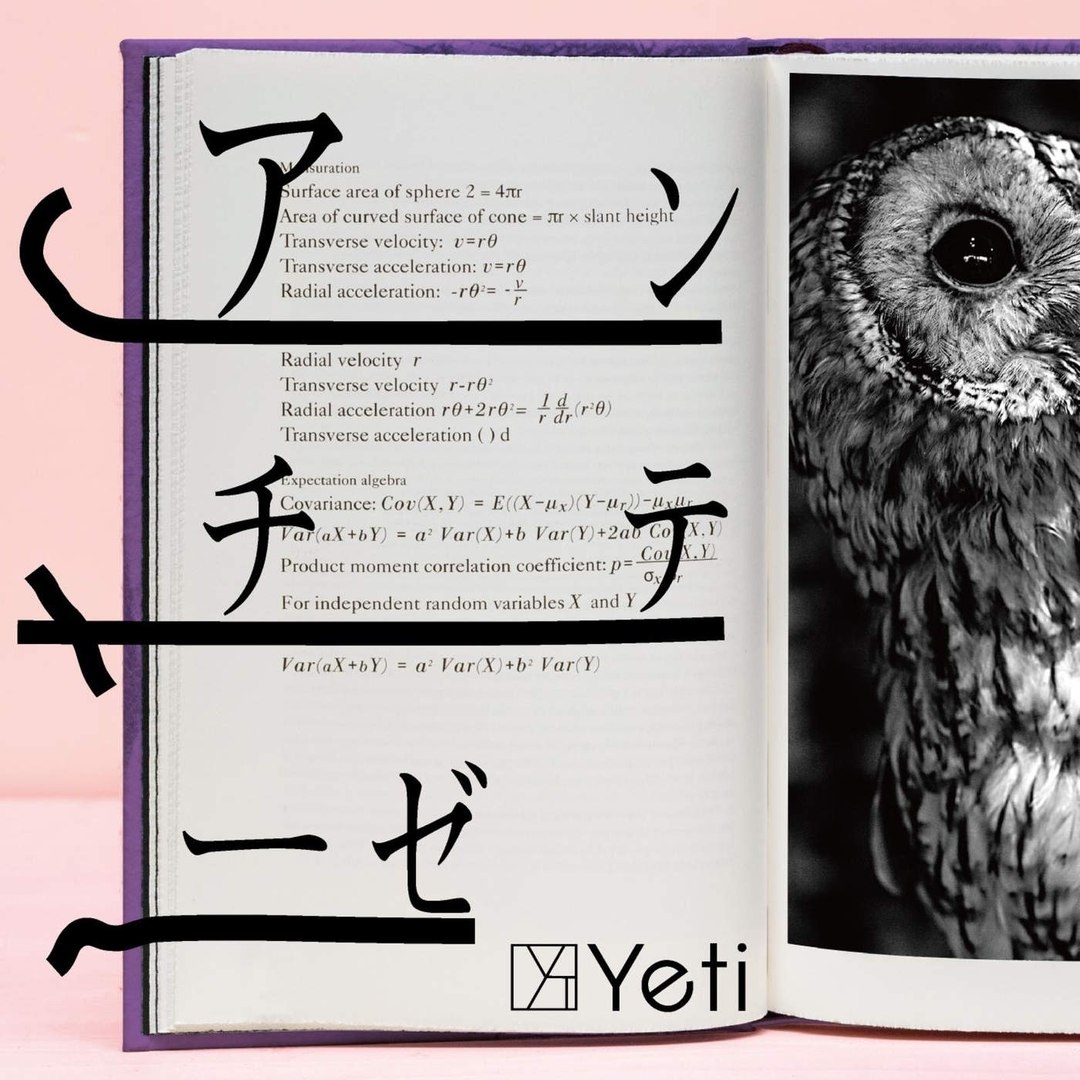 アン
Mensuration
Surface area of sphere 2 = 4πr
Area of curved surface of cone = πr × slant height
Transverse velocity: v=rθ
Transverse acceleration: v=rθ
Radial acceleration: -rθ²= -v/r
Radial velocity r
Transverse velocity r-rθ²
Radial acceleration rθ+2rθ²= 1/r d/dr (r²θ)
Transverse acceleration ( ) d
チテ
Expectation algebra
Covariance: Cov(X,Y) = E((X-μx)(Y-μr))-μxμr
Var(aX+bY) = a² Var(X)+b Var(Y)+2ab Cov(X,Y)
Product moment correlation coefficient: p= Cov(X,Y)/σxσr
For independent random variables X and Y
Var(aX+bY) = a² Var(X)+b² Var(Y)
ーゼ
Yeti